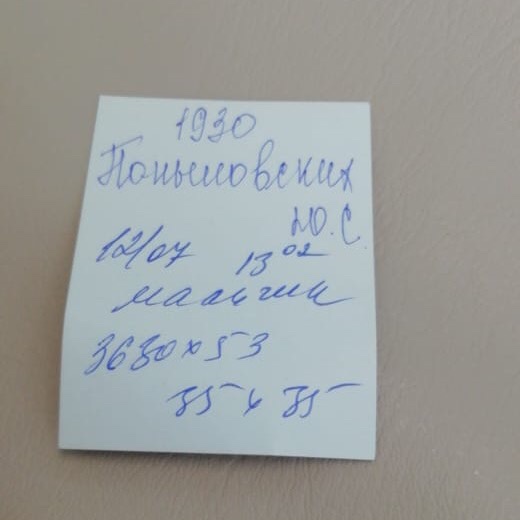 1930
Поныловских
Ю.С.
12/07 13 02
мальчик
3680 x 53
35 x 35